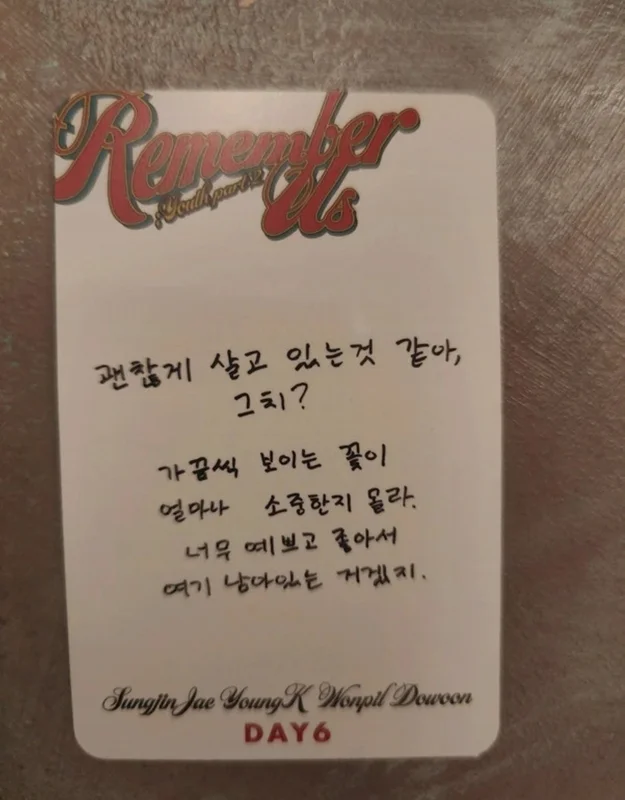 Remember
Us
: Youth part 2
괜찮게 살고 있는것 같아,
그치?
가끔씩 보이는 꽃이
얼마나 소중한지 몰라.
너무 예쁘고 좋아서
여기 남아있는 거겠지.
Sungjin Jae YoungK Wonpil Dowoon
DAY6